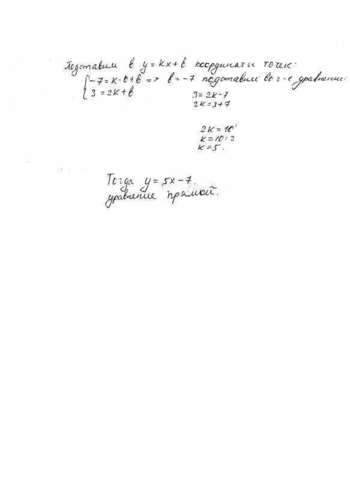 Подставим в y = kx + b координаты точек:
{ -7 = k·0 + b => b = -7 подставим во 2-е уравнение
3 = 2k + b 3 = 2k - 7
2k = 3 + 7
2k = 10
k = 10 : 2
k = 5.
Тогда y = 5x - 7.
уравнение прямой.